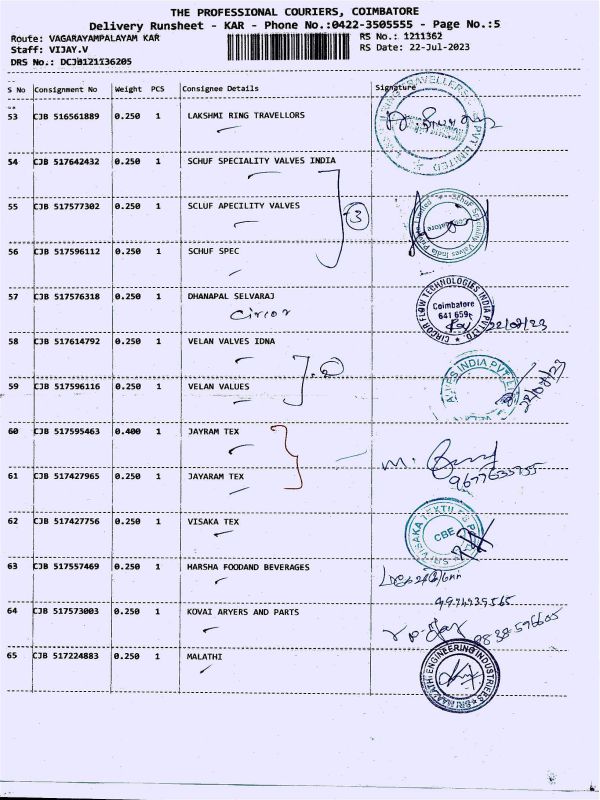 THE PROFESSIONAL COURIERS, COIMBATORE
Delivery Runsheet - KAR - Phone No.:0422-3505555 - Page No.:5
Route: VAGARAYAMPALAYAM KAR RS No.: 1211362
Staff: VIJAY.V RS Date: 22-Jul-2023
DRS No.: DCJB121136205
S No Consignment No Weight PCS Consignee Details Signature
53 CJB 516561889 0.250 1 LAKSHMI RING TRAVELLORS
54 CJB 517642432 0.250 1 SCHUF SPECIALITY VALVES INDIA
55 CJB 517577302 0.250 1 SCLUF APECILITY VALVES
3
56 CJB 517596112 0.250 1 SCHUF SPEC
57 CJB 517576318 0.250 1 DHANAPAL SELVARAJ
Circor
CIRCOR FLOW TECHNOLOGIES INDIA PVT LTD
Coimbatore
641 659
58 CJB 517614792 0.250 1 VELAN VALVES IDNA
59 CJB 517596116 0.250 1 VELAN VALUES
60 CJB 517595463 0.400 1 JAYRAM TEX
61 CJB 517427965 0.250 1 JAYARAM TEX
62 CJB 517427756 0.250 1 VISAKA TEX
CBE
63 CJB 517557469 0.250 1 HARSHA FOODAND BEVERAGES
64 CJB 517573003 0.250 1 KOVAI ARYERS AND PARTS
65 CJB 517224883 0.250 1 MALATHI
SRI MALATHI ENGINEERING INDUSTRIES